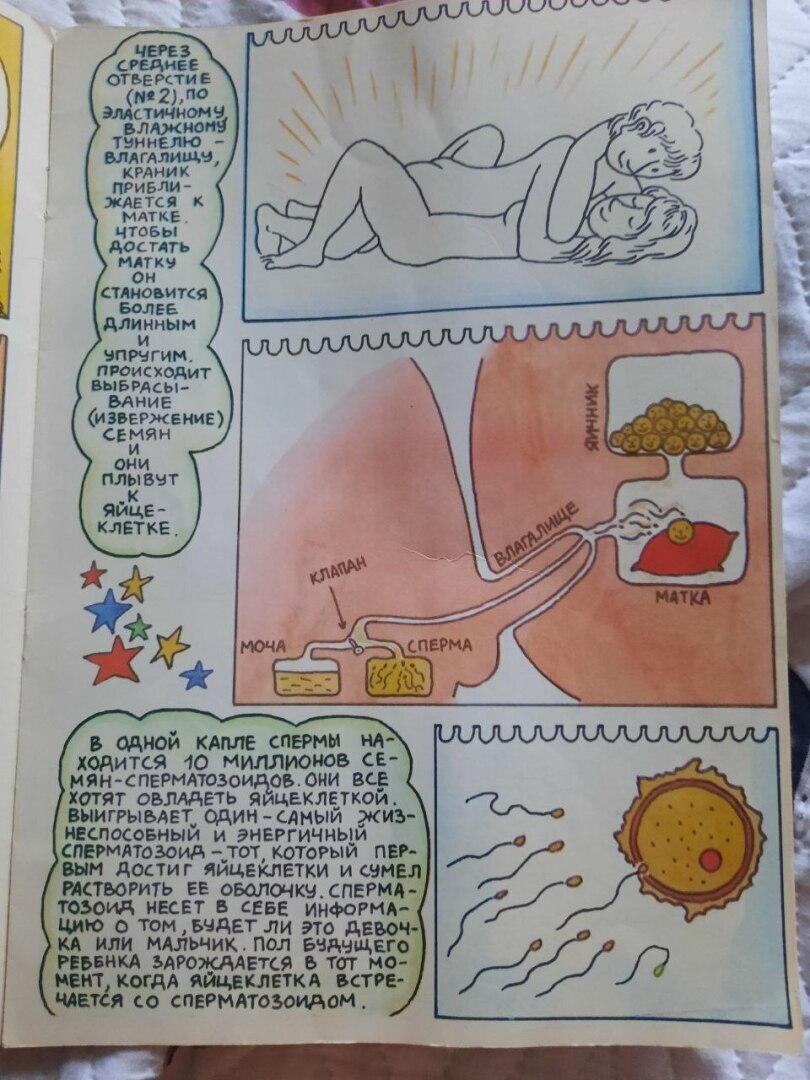 ЧЕРЕЗ
СРЕДНЕЕ
ОТВЕРСТИЕ
(№2), ПО
ЭЛАСТИЧНОМУ
ВЛАЖНОМУ
ТУННЕЛЮ –
ВЛАГАЛИЩУ,
КРАНИК
ПРИБЛИ-
ЖАЕТСЯ К
МАТКЕ.
ЧТОБЫ
ДОСТАТЬ
МАТКУ
ОН
СТАНОВИТСЯ
БОЛЕЕ
ДЛИННЫМ
И
УПРУГИМ.
ПРОИСХОДИТ
ВЫБРАСЫ-
ВАНИЕ
(ИЗВЕРЖЕНИЕ)
СЕМЯН
И
ОНИ
ПЛЫВУТ
К
ЯЙЦЕ-
КЛЕТКЕ.
ЯИЧНИК
ВЛАГАЛИЩЕ
МАТКА
КЛАПАН
МОЧА
СПЕРМА
В ОДНОЙ КАПЛЕ СПЕРМЫ НА-
ХОДИТСЯ 10 МИЛЛИОНОВ СЕ-
МЯН-СПЕРМАТОЗОИДОВ. ОНИ ВСЕ
ХОТЯТ ОВЛАДЕТЬ ЯЙЦЕКЛЕТКОЙ.
ВЫИГРЫВАЕТ ОДИН – САМЫЙ ЖИЗ-
НЕСПОСОБНЫЙ И ЭНЕРГИЧНЫЙ
СПЕРМАТОЗОИД – ТОТ, КОТОРЫЙ ПЕР-
ВЫМ ДОСТИГ ЯЙЦЕКЛЕТКИ И СУМЕЛ
РАСТВОРИТЬ ЕЕ ОБОЛОЧКУ. СПЕРМА-
ТОЗОИД НЕСЕТ В СЕБЕ ИНФОРМА-
ЦИЮ О ТОМ, БУДЕТ ЛИ ЭТО ДЕВОЧ-
КА ИЛИ МАЛЬЧИК. ПОЛ БУДУЩЕГО
РЕБЕНКА ЗАРОЖДАЕТСЯ В ТОТ МО-
МЕНТ, КОГДА ЯЙЦЕКЛЕТКА ВСТРЕ-
ЧАЕТСЯ СО СПЕРМАТОЗОИДОМ.